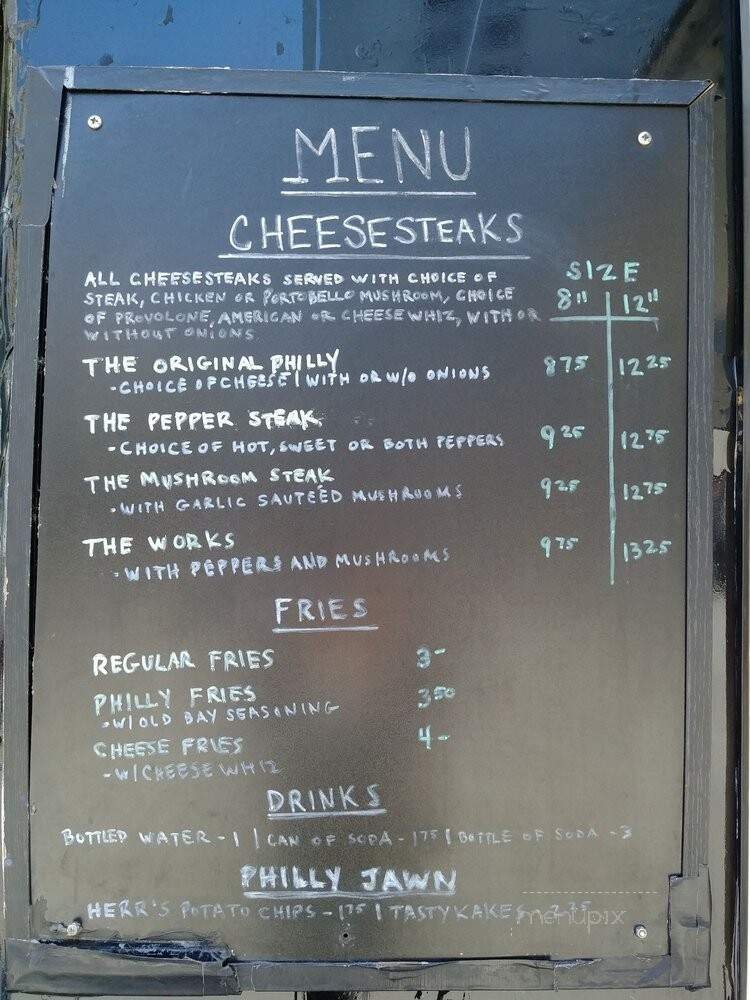 MENU
CHEESESTEAKS
ALL CHEESESTEAKS SERVED WITH CHOICE OF
STEAK, CHICKEN OR PORTOBELLO MUSHROOM, CHOICE
OF PROVOLONE, AMERICAN OR CHEESE WHIZ, WITH OR
WITHOUT ONIONS
SIZE
8" 12"
THE ORIGINAL PHILLY 875 1225
-CHOICE OF CHEESE | WITH OR W/O ONIONS
THE PEPPER STEAK 925 1275
-CHOICE OF HOT, SWEET OR BOTH PEPPERS
THE MUSHROOM STEAK 925 1275
-WITH GARLIC SAUTEED MUSHROOMS
THE WORKS 975 1325
-WITH PEPPERS AND MUSHROOMS
FRIES
REGULAR FRIES 3-
PHILLY FRIES 350
-W/OLD BAY SEASONING
CHEESE FRIES 4-
-W/CHEESE WHIZ
DRINKS
BOTTLED WATER - 1 | CAN OF SODA - 175 | BOTTLE OF SODA - 3
PHILLY JAWN
HERR'S POTATO CHIPS - 175 | TASTYKAKES -
menupix